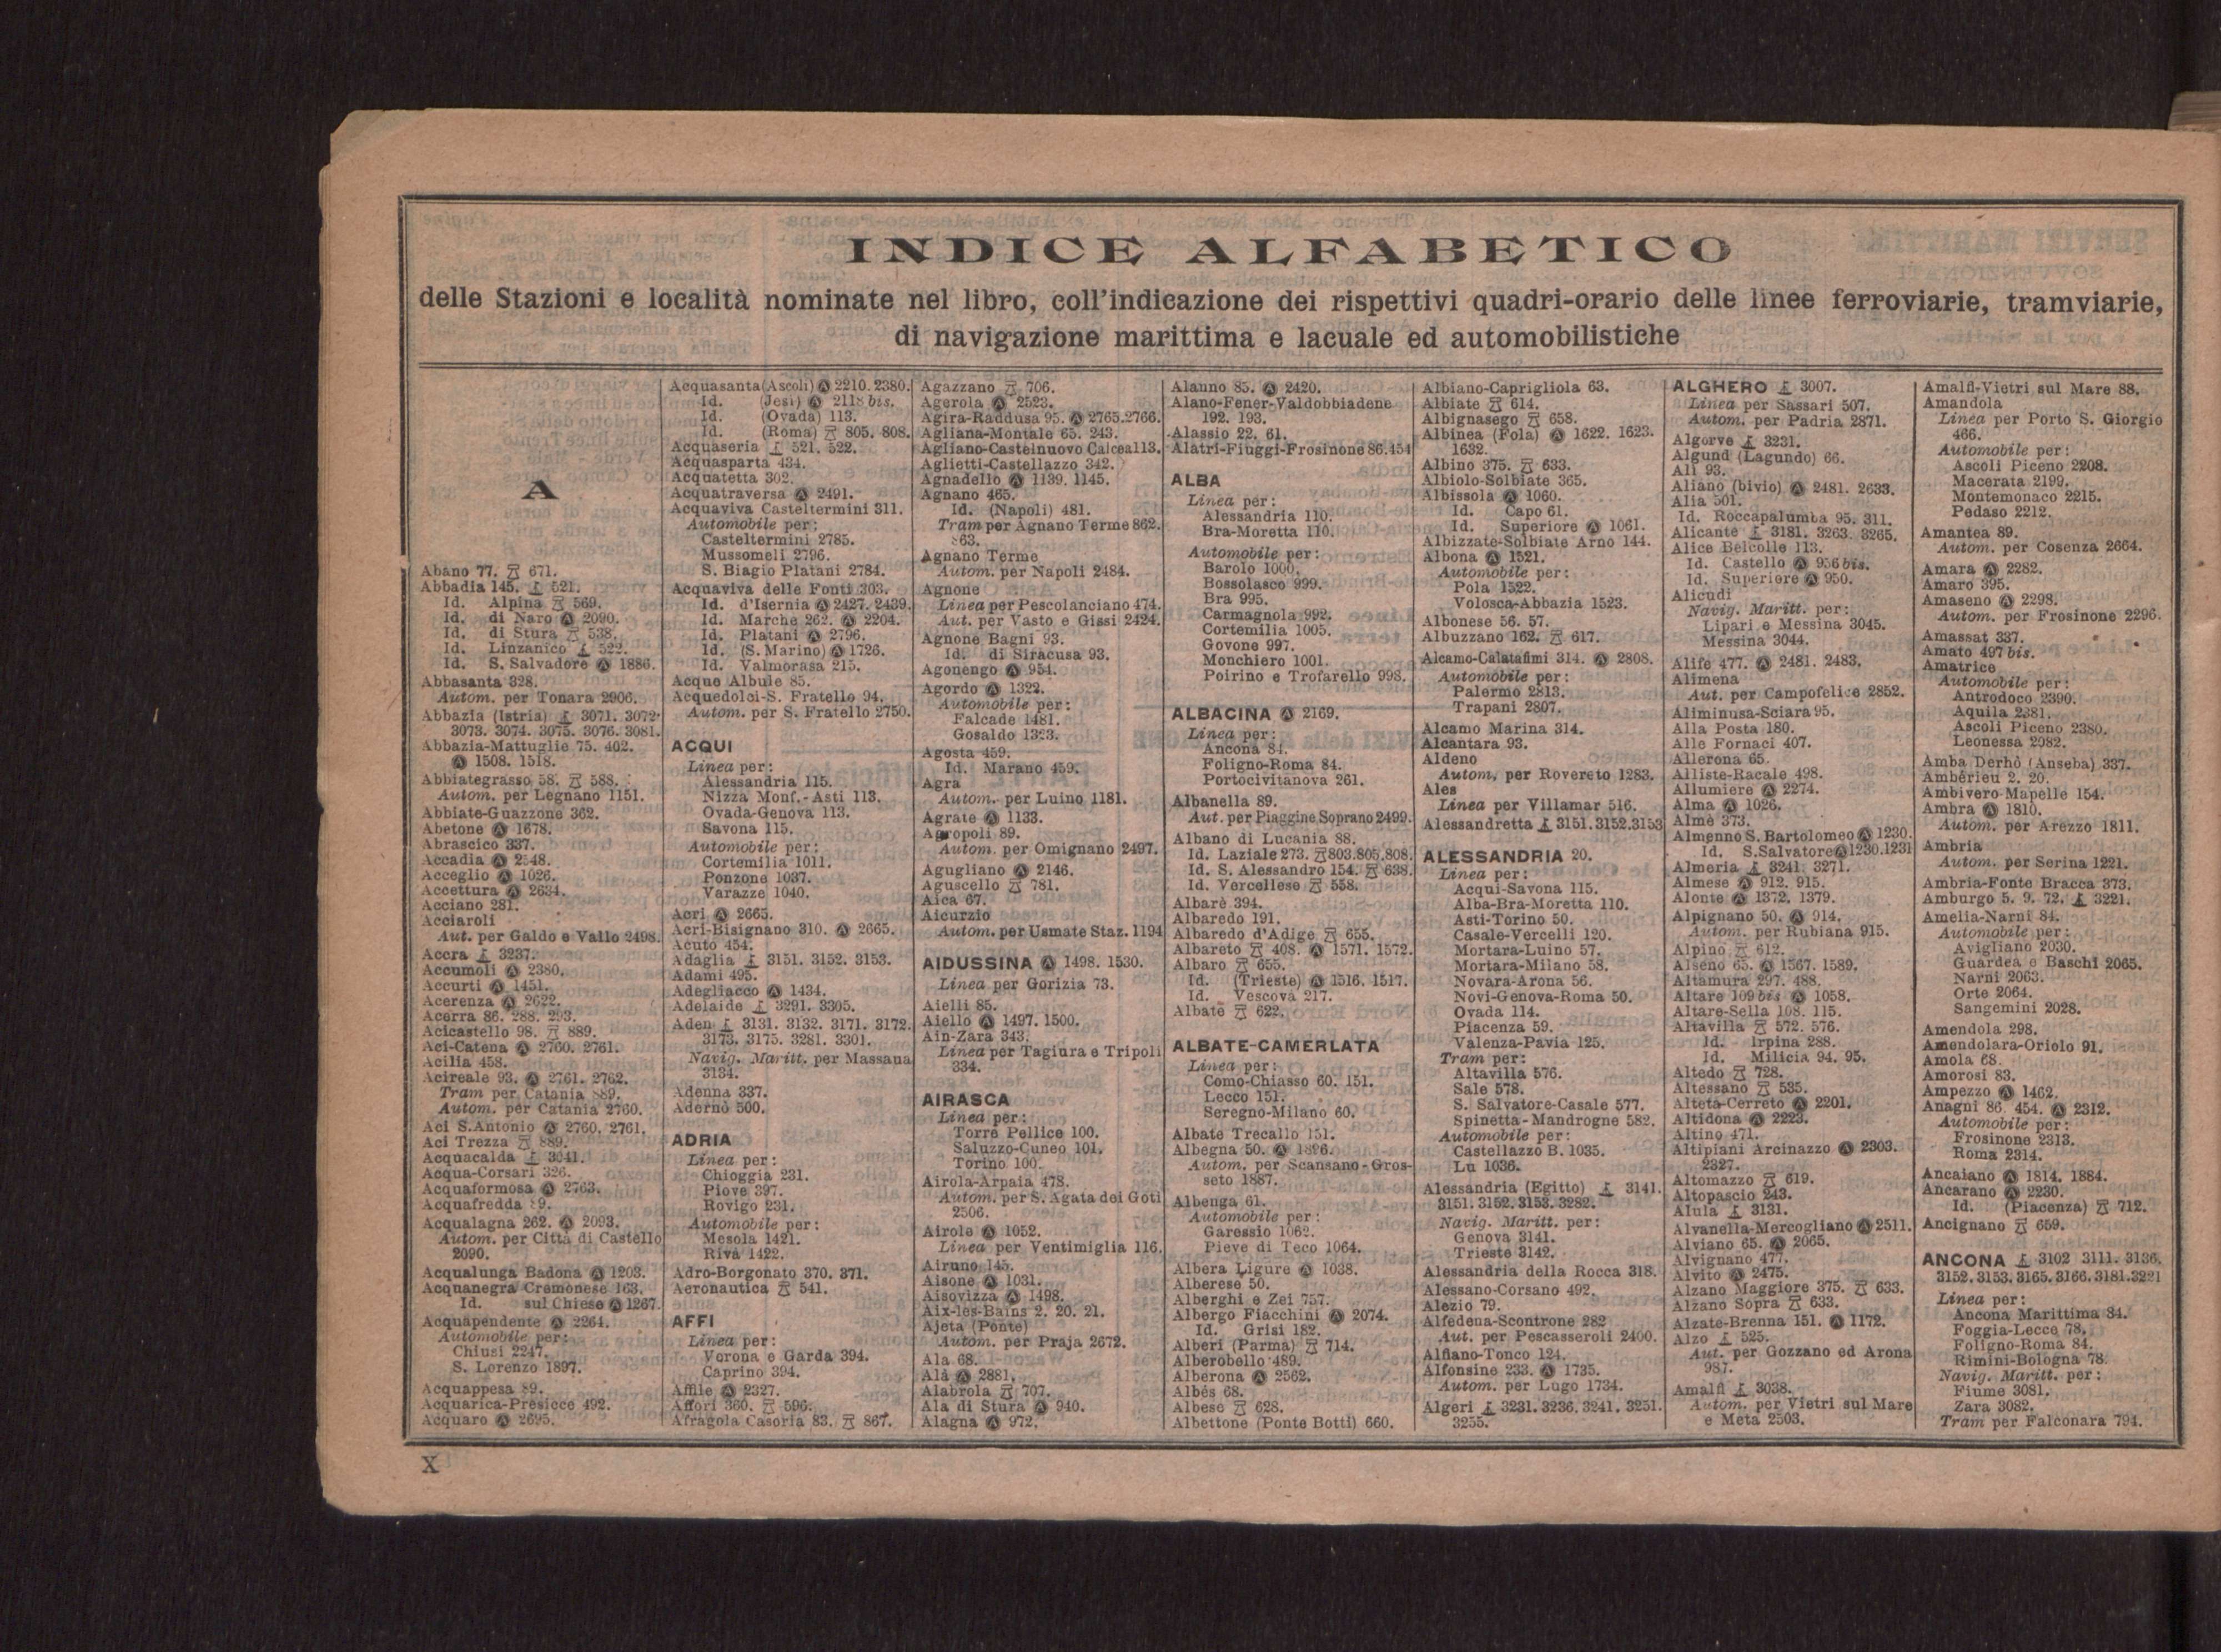 INDICE ALFABETICO
delle Stazioni e località nominate nel libro, coll'indicazione dei rispettivi quadri-orario delle linee ferroviarie, tramviarie,
di navigazione marittima e lacuale ed automobilistiche
A
Abano 77. 671.
Abbadia 145. 521.
Id. Alpina 569.
Id. di Naro Ⓐ 2090.
Id. di Stura 538.
Id. Linzanico 522.
Id. S. Salvadore Ⓐ 1886.
Abbasanta 328.
Autom. per Tonara 2906.
Abbazia (Istria) 3071. 3072.
3073. 3074. 3075. 3076. 3081.
Abbazia-Mattuglie 75. 402.
Ⓐ 1508. 1518.
Abbiategrasso 58. 588.
Autom. per Legnano 1151.
Abbiate-Guazzone 362.
Abetone Ⓐ 1678.
Abrascico 337.
Accadia Ⓐ 2548.
Acceglio Ⓐ 1026.
Accettura Ⓐ 2634.
Acciano 281.
Acciaroli
Aut. per Galdo e Vallo 2498.
Accra 3237.
Accumoli Ⓐ 2380.
Accurti Ⓐ 1451.
Acerenza Ⓐ 2622.
Acerra 86. 288. 293.
Acicastello 98. 889.
Aci-Catena Ⓐ 2760. 2761.
Acilia 458.
Acireale 93. Ⓐ 2761. 2762.
Tram per Catania 889.
Autom. per Catania 2760.
Aci S.Antonio Ⓐ 2760. 2761.
Aci Trezza 889.
Acquacalda 3041.
Acqua-Corsari 326.
Acquaformosa Ⓐ 2763.
Acquafredda 89.
Acqualagna 262. Ⓐ 2093.
Autom. per Città di Castello
2090.
Acqualunga Badona Ⓐ 1203.
Acquanegra Cremonese 163.
Id. sul Chiese Ⓐ 1267.
Acquapendente Ⓐ 2264.
Automobile per:
Chiusi 2247.
S. Lorenzo 1897.
Acquappesa 89.
Acquarica-Presicce 492.
Acquaro Ⓐ 2695.
Acquasanta (Ascoli) Ⓐ 2210. 2380.
Id. (Jesi) Ⓐ 2118 bis.
Id. (Ovada) 113.
Id. (Roma) 805. 808.
Acquaseria 521. 522.
Acquasparta 434.
Acquatetta 302.
Acquatraversa Ⓐ 2491.
Acquaviva Casteltermini 311.
Automobile per:
Casteltermini 2785.
Mussomeli 2796.
S. Biagio Platani 2784.
Acquaviva delle Fonti 303.
Id. d'Isernia Ⓐ 2427. 2439.
Id. Marche 262. Ⓐ 2204.
Id. Platani Ⓐ 2796.
Id. (S. Marino) Ⓐ 1726.
Id. Valmorasa 215.
Acque Albule 85.
Acquedolci-S. Fratello 94.
Autom. per S. Fratello 2750.
ACQUI
Linea per:
Alessandria 115.
Nizza Monf.-Asti 113.
Ovada-Genova 113.
Savona 115.
Automobile per:
Cortemilia 1011.
Ponzone 1037.
Varazze 1040.
Acri Ⓐ 2665.
Acri-Bisignano 310. Ⓐ 2665.
Acuto 454.
Adaglia 3151. 3152. 3153.
Adami 495.
Adegliacco Ⓐ 1434.
Adelaide 3291. 3305.
Aden 3131. 3132. 3171. 3172.
3173. 3175. 3281. 3301.
Navig. Maritt. per Massaua
3134.
Adenna 337.
Adernò 500.
ADRIA
Linea per:
Chioggia 231.
Piove 397.
Rovigo 231.
Automobile per:
Mesola 1421.
Rivà 1422.
Adro-Borgonato 370. 371.
Aeronautica 541.
AFFI
Linea per:
Verona e Garda 394.
Caprino 394.
Affile Ⓐ 2327.
Affori 360. 596.
Afragola Casoria 83. 867.
Agazzano 706.
Agerola Ⓐ 2523.
Agira-Raddusa 95. Ⓐ 2765.2766.
Agliana-Montale 65. 243.
Agliano-Castelnuovo Calcea113.
Aglietti-Castellazzo 342.
Agnadello Ⓐ 1139. 1145.
Agnano 465.
Id. (Napoli) 481.
Tram per Agnano Terme 862.
863.
Agnano Terme
Autom. per Napoli 2484.
Agnone
Linea per Pescolanciano 474.
Aut. per Vasto e Gissi 2424.
Agnone Bagni 93.
Id. di Siracusa 93.
Agonengo Ⓐ 954.
Agordo Ⓐ 1322.
Automobile per:
Falcade 1481.
Gosaldo 1323.
Agosta 459.
Id. Marano 459.
Agra
Autom. per Luino 1181.
Agrate Ⓐ 1133.
Agropoli 89.
Autom. per Omignano 2497.
Agugliano Ⓐ 2146.
Aguscello 781.
Aica 67.
Aicurzio
Autom. per Usmate Staz. 1194
AIDUSSINA Ⓐ 1498. 1530.
Linea per Gorizia 73.
Aielli 85.
Aiello Ⓐ 1497. 1500.
Ain-Zara 343.
Linea per Tagiura e Tripoli
334.
AIRASCA
Linea per:
Torre Pellice 100.
Saluzzo-Cuneo 101.
Torino 100.
Airola-Arpaia 478.
Autom. per S. Agata dei Goti
2506.
Airole Ⓐ 1052.
Linea per Ventimiglia 116.
Airuno 145.
Aisone Ⓐ 1031.
Aisovizza Ⓐ 1498.
Aix-les-Bains 2. 20. 21.
Ajeta (Ponte)
Autom. per Praja 2672.
Ala 68.
Alà Ⓐ 2881.
Alabrola 707.
Ala di Stura Ⓐ 940.
Alagna Ⓐ 972.
Alanno 85. Ⓐ 2420.
Alano-Fener-Valdobbiadene
192. 193.
Alassio 22. 61.
Alatri-Fiuggi-Frosinone 86.454
ALBA
Linea per:
Alessandria 110.
Bra-Moretta 110.
Automobile per:
Barolo 1000.
Bossolasco 999.
Bra 995.
Carmagnola 992.
Cortemilia 1005.
Govone 997.
Monchiero 1001.
Poirino e Trofarello 998.
ALBACINA Ⓐ 2169.
Linea per:
Ancona 84.
Foligno-Roma 84.
Portocivitanova 261.
Albanella 89.
Aut. per Piaggine Soprano 2499.
Albano di Lucania 88.
Id. Laziale 273. 803.805.808.
Id. S. Alessandro 154. 638.
Id. Vercellese 558.
Albarè 394.
Albaredo 191.
Albaredo d'Adige 655.
Albareto 408. Ⓐ 1571. 1572.
Albaro 655.
Id. (Trieste) Ⓐ 1516. 1517.
Id. Vescovà 217.
Albate 622.
ALBATE-CAMERLATA
Linea per:
Como-Chiasso 60. 151.
Lecco 151.
Seregno-Milano 60.
Albate Trecallo 151.
Albegna 50. Ⓐ 1896.
Autom. per Scansano-Gros-
seto 1887.
Albenga 61.
Automobile per:
Garessio 1062.
Pieve di Teco 1064.
Albera Ligure Ⓐ 1038.
Alberese 50.
Alberghi e Zei 757.
Albergo Fiacchini Ⓐ 2074.
Id. Grisi 182.
Alberi (Parma) 714.
Alberobello 489.
Alberona Ⓐ 2562.
Albés 68.
Albese 628.
Albettone (Ponte Botti) 660.
Albiano-Caprigliola 63.
Albiate 614.
Albignasego 658.
Albinea (Fola) Ⓐ 1622. 1623.
1632.
Albino 375. 633.
Albiolo-Solbiate 365.
Albissola Ⓐ 1060.
Id. Capo 61.
Id. Superiore Ⓐ 1061.
Albizzate-Solbiate Arno 144.
Albona Ⓐ 1521.
Automobile per:
Pola 1522.
Volosca-Abbazia 1523.
Albonese 56. 57.
Albuzzano 162. 617.
Alcamo-Calatafimi 314. Ⓐ 2808.
Automobile per:
Palermo 2813.
Trapani 2807.
Alcamo Marina 314.
Alcantara 93.
Aldeno
Autom. per Rovereto 1283.
Ales
Linea per Villamar 516.
Alessandretta 3151.3152.3153
ALESSANDRIA 20.
Linea per:
Acqui-Savona 115.
Alba-Bra-Moretta 110.
Asti-Torino 50.
Casale-Vercelli 120.
Mortara-Luino 57.
Mortara-Milano 58.
Novara-Arona 56.
Novi-Genova-Roma 50.
Ovada 114.
Piacenza 59.
Valenza-Pavia 125.
Tram per:
Altavilla 576.
Sale 578.
S. Salvatore-Casale 577.
Spinetta-Mandrogne 582.
Automobile per:
Castellazzo B. 1035.
Lu 1036.
Alessandria (Egitto) 3141.
3151. 3152. 3153. 3282.
Navig. Maritt. per:
Genova 3141.
Trieste 3142.
Alessandria della Rocca 318.
Alessano-Corsano 492.
Alezio 79.
Alfedena-Scontrone 282
Aut. per Pescasseroli 2400.
Alfiano-Tonco 124.
Alfonsine 233. Ⓐ 1735.
Autom. per Lugo 1734.
Algeri 3231. 3236. 3241. 3251.
3255.
ALGHERO 3007.
Linea per Sassari 507.
Autom. per Padria 2871.
Algorve 3231.
Algund (Lagundo) 66.
Alì 93.
Aliano (bivio) Ⓐ 2481. 2633.
Alia 501.
Id. Roccapalumba 95. 311.
Alicante 3181. 3263. 3265.
Alice Belcolle 113.
Id. Castello Ⓐ 956 bis.
Id. Superiore Ⓐ 950.
Alicudi
Navig. Maritt. per:
Lipari e Messina 3045.
Messina 3044.
Alife 477. Ⓐ 2481. 2483.
Alimena
Aut. per Campofelice 2852.
Aliminusa-Sciara 95.
Alla Posta 180.
Alle Fornaci 407.
Allerona 65.
Alliste-Racale 498.
Allumiere Ⓐ 2274.
Alma Ⓐ 1026.
Almè 373.
Almenno S. Bartolomeo Ⓐ 1230.
Id. S.Salvatore Ⓐ 1230.1231
Almeria 3241. 3271.
Almese Ⓐ 912. 915.
Alonte Ⓐ 1372. 1379.
Alpignano 50. Ⓐ 914.
Autom. per Rubiana 915.
Alpino 612.
Alseno 65. Ⓐ 1567. 1589.
Altamura 297. 488.
Altare 109 bis Ⓐ 1058.
Altare-Sella 108. 115.
Altavilla 572. 576.
Id. Irpina 288.
Id. Milicia 94. 95.
Altedo 728.
Altessano 535.
Alteta-Cerreto Ⓐ 2201.
Altidona Ⓐ 2223.
Altino 471.
Altipiani Arcinazzo Ⓐ 2303.
2327.
Altomazzo 619.
Altopascio 243.
Alula 3131.
Alvanella-Mercogliano Ⓐ 2511.
Alviano 65. Ⓐ 2065.
Alvignano 477.
Alvito Ⓐ 2475.
Alzano Maggiore 375. 633.
Alzano Sopra 633.
Alzate-Brenna 151. Ⓐ 1172.
Alzo 525.
Aut. per Gozzano ed Arona
987.
Amalfi 3038.
Autom. per Vietri sul Mare
e Meta 2503.
Amalfi-Vietri sul Mare 88.
Amandola
Linea per Porto S. Giorgio
466.
Automobile per:
Ascoli Piceno 2208.
Macerata 2199.
Montemonaco 2215.
Pedaso 2212.
Amantea 89.
Autom. per Cosenza 2664.
Amara Ⓐ 2282.
Amaro 395.
Amaseno Ⓐ 2298.
Autom. per Frosinone 2296.
Amassat 337.
Amato 497 bis.
Amatrice
Automobile per:
Antrodoco 2390.
Aquila 2381.
Ascoli Piceno 2380.
Leonessa 2082.
Amba Derhò (Anseba) 337.
Ambérieu 2. 20.
Ambivero-Mapelle 154.
Ambra Ⓐ 1810.
Autom. per Arezzo 1811.
Ambria
Autom. per Serina 1221.
Ambria-Fonte Bracca 373.
Amburgo 5. 9. 72. 3221.
Amelia-Narni 84.
Automobile per:
Avigliano 2030.
Guardea e Baschi 2065.
Narni 2063.
Orte 2064.
Sangemini 2028.
Amendola 298.
Amendolara-Oriolo 91.
Amola 68.
Amorosi 83.
Ampezzo Ⓐ 1462.
Anagni 86. 454. Ⓐ 2312.
Automobile per:
Frosinone 2313.
Roma 2314.
Ancaiano Ⓐ 1814. 1884.
Ancarano Ⓐ 2230.
Id. (Piacenza) 712.
Ancignano 659.
ANCONA 3102 3111. 3136.
3152. 3153. 3165. 3166. 3181. 3221
Linea per:
Ancona Marittima 84.
Foggia-Lecce 78.
Foligno-Roma 84.
Rimini-Bologna 78.
Navig. Maritt. per:
Fiume 3081.
Zara 3082.
Tram per Falconara 794.
X